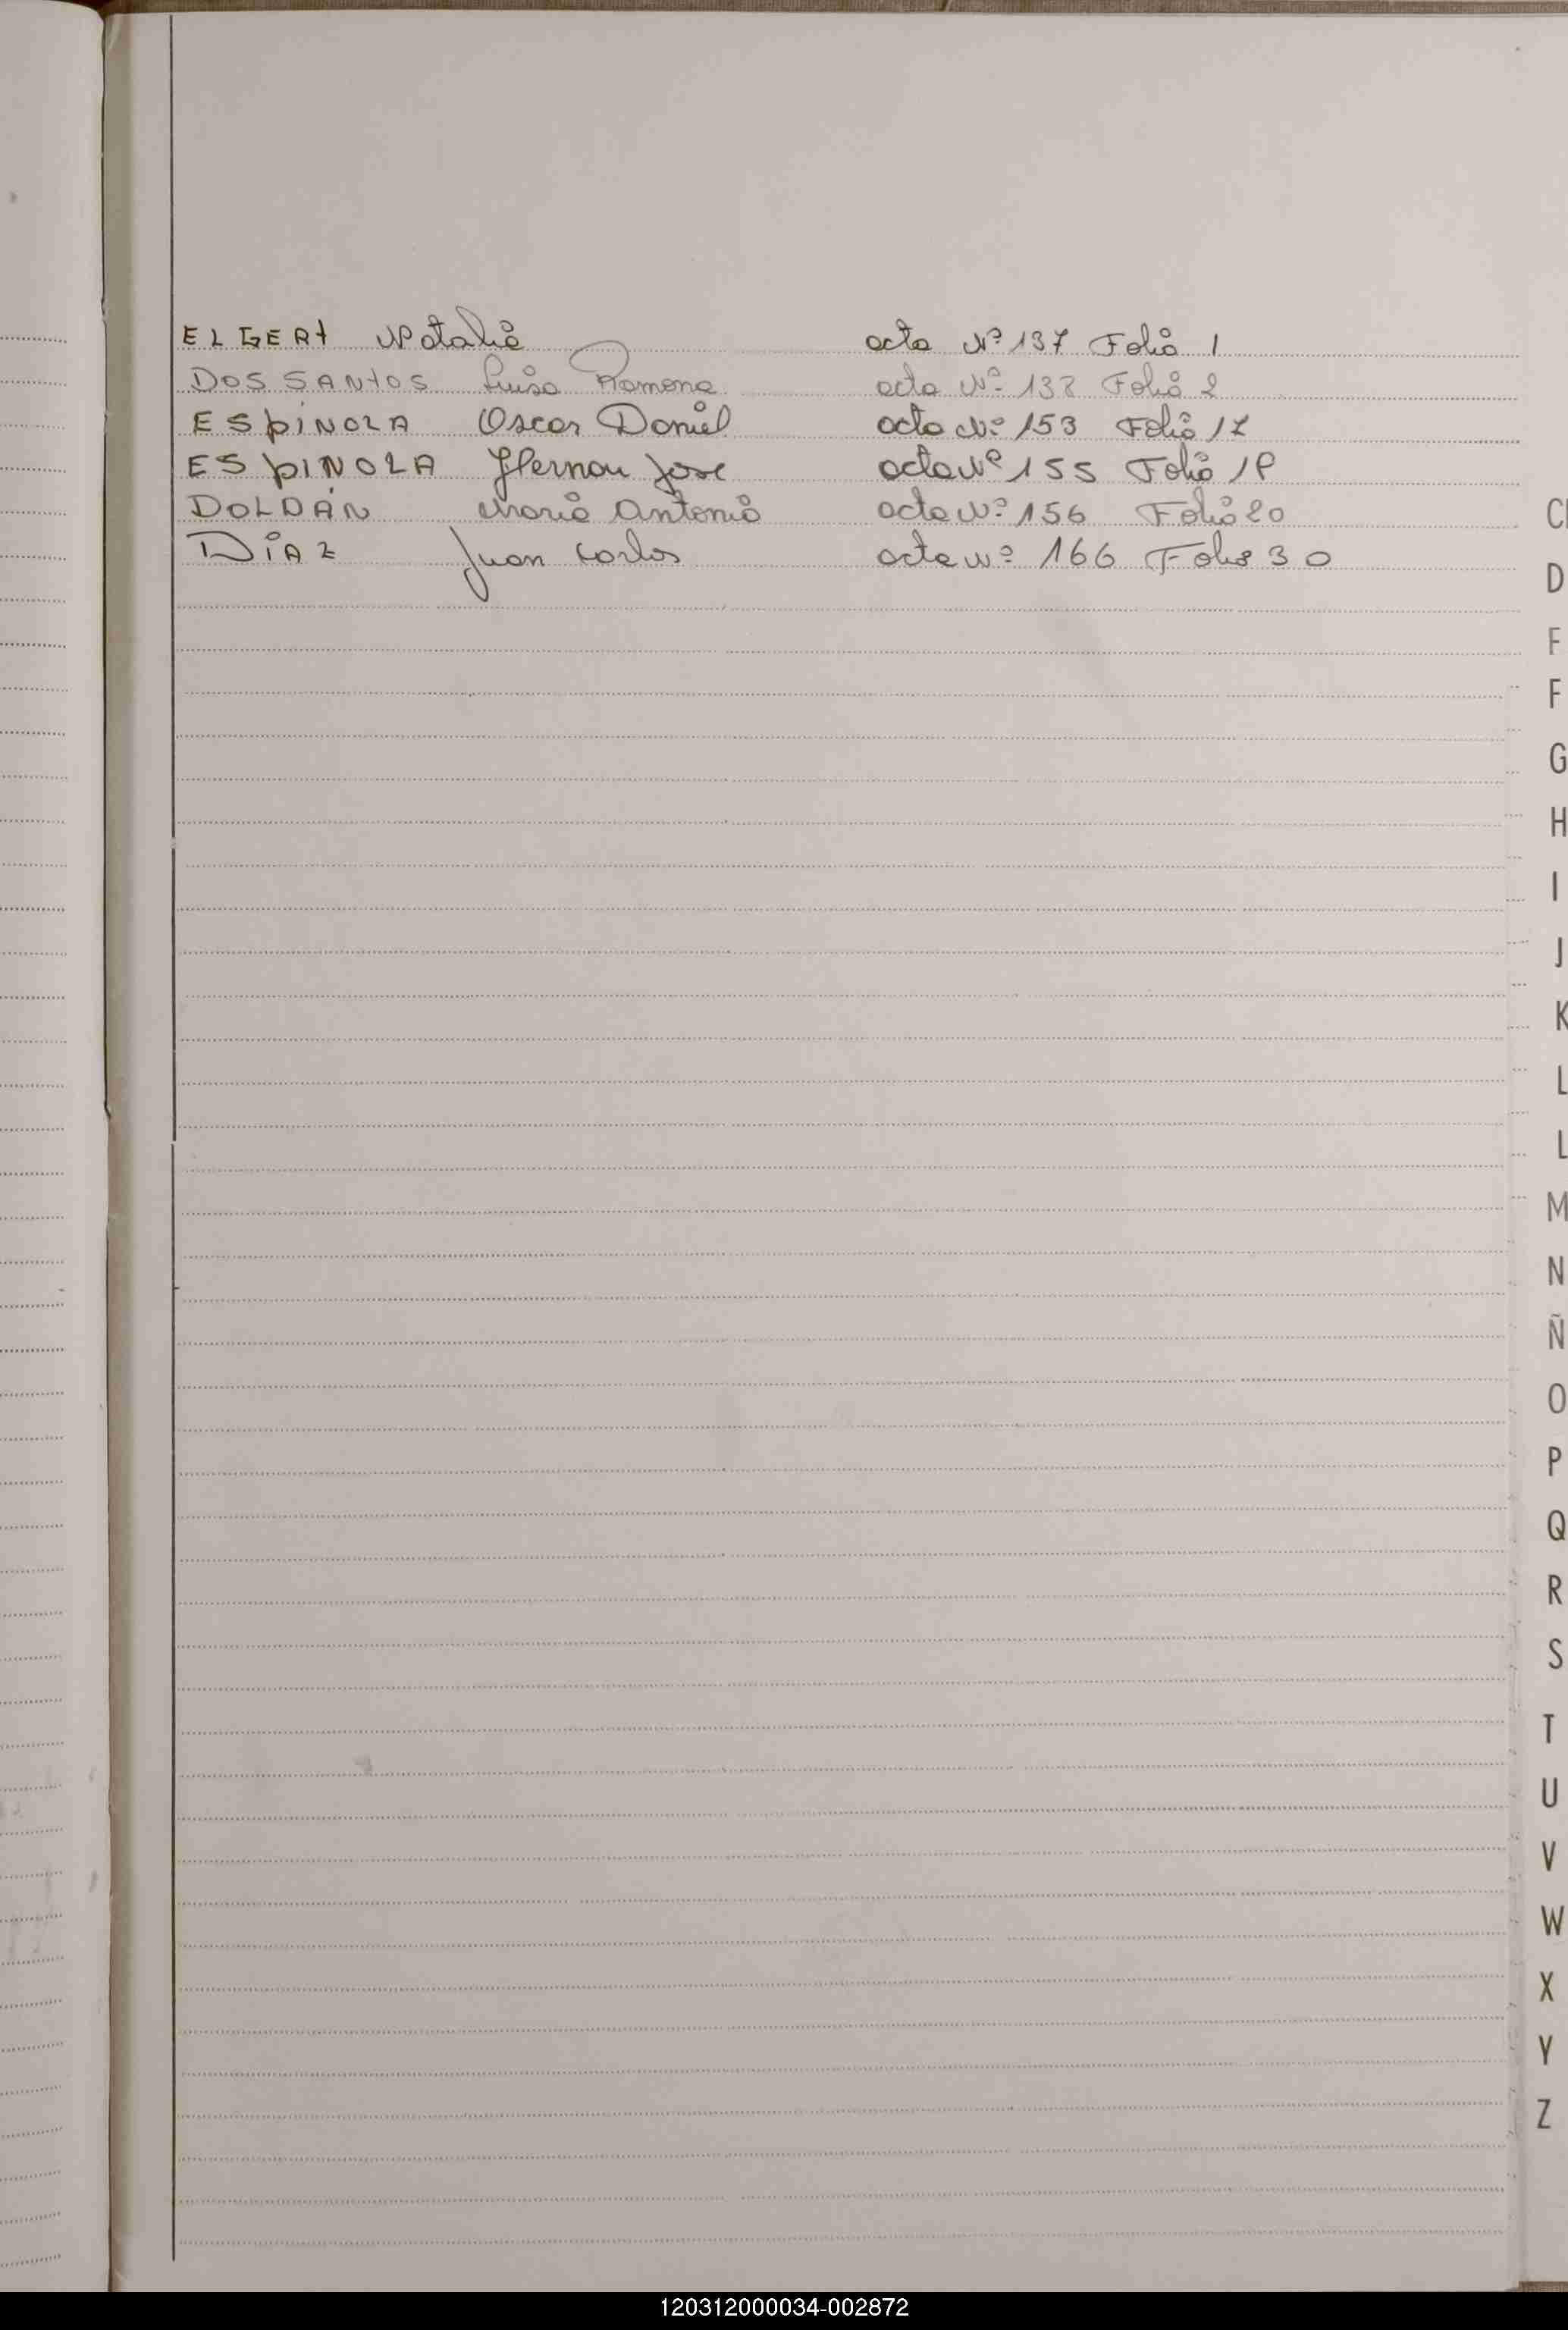 ELGERt Natalia acta Nº 137 Folio 1
DOS SANtOS Luisa Ramona acta Nº 138 Folio 2
ESpíNOLA Oscar Daniel acta Nº 153 Folio 17
ESpíNOLA Hernan Jose acta Nº 155 Folio 19
DOLDÁN Maria Antonia acta Nº 156 Folio 20
Díaz Juan Carlos acta Nº 166 Folio 30
D
F
G
H
I
J
K
L
L
M
N
Ñ
O
P
Q
R
S
T
U
V
W
X
Y
Z
120312000034-002872